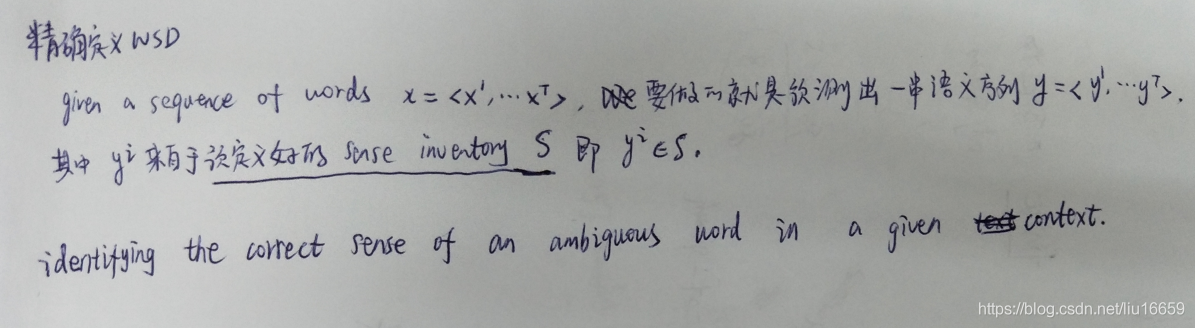 精确定义WSD
given a sequence of words x = <x¹, … xᵀ>, 要做的就是预测出一串语义序列 y = <y¹, … yᵀ>.
其中 yⁱ 来自于预定义好的 sense inventory S 即 yⁱ ∈ S.
identifying the correct sense of an ambiguous word in a given context.
https://blog.csdn.net/liu16659